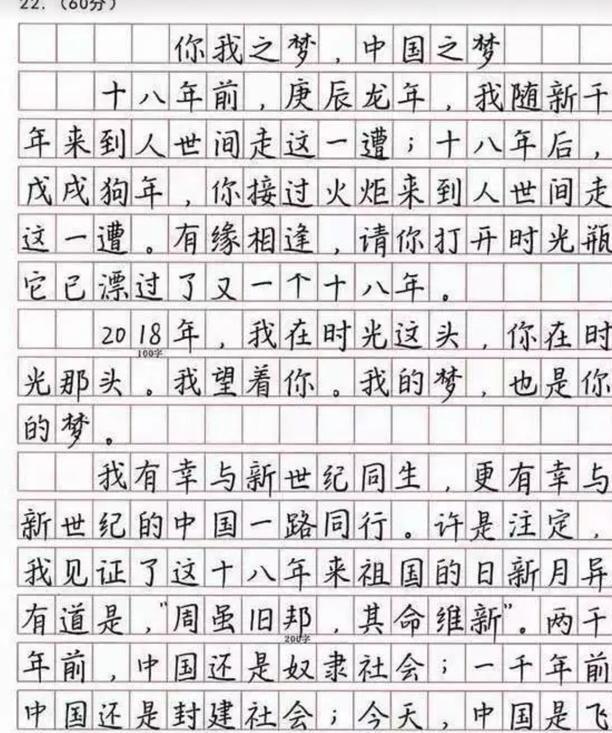 22.（60分）
你我之梦，中国之梦
十八年前，庚辰龙年，我随新千
年来到人世间走这一遭；十八年后，
戊戌狗年，你接过火炬来到人世间走
这一遭。有缘相逢，请你打开时光瓶
它已漂过了又一个十八年。
2018年，我在时光这头，你在时
100字
光那头。我望着你。我的梦，也是你
的梦。
我有幸与新世纪同生，更有幸与
新世纪的中国一路同行。许是注定，
我见证了这十八年来祖国的日新月异
有道是，“周虽旧邦，其命维新”。两千
200字
年前，中国还是奴隶社会；一千年前
中国还是封建社会；今天，中国是飞